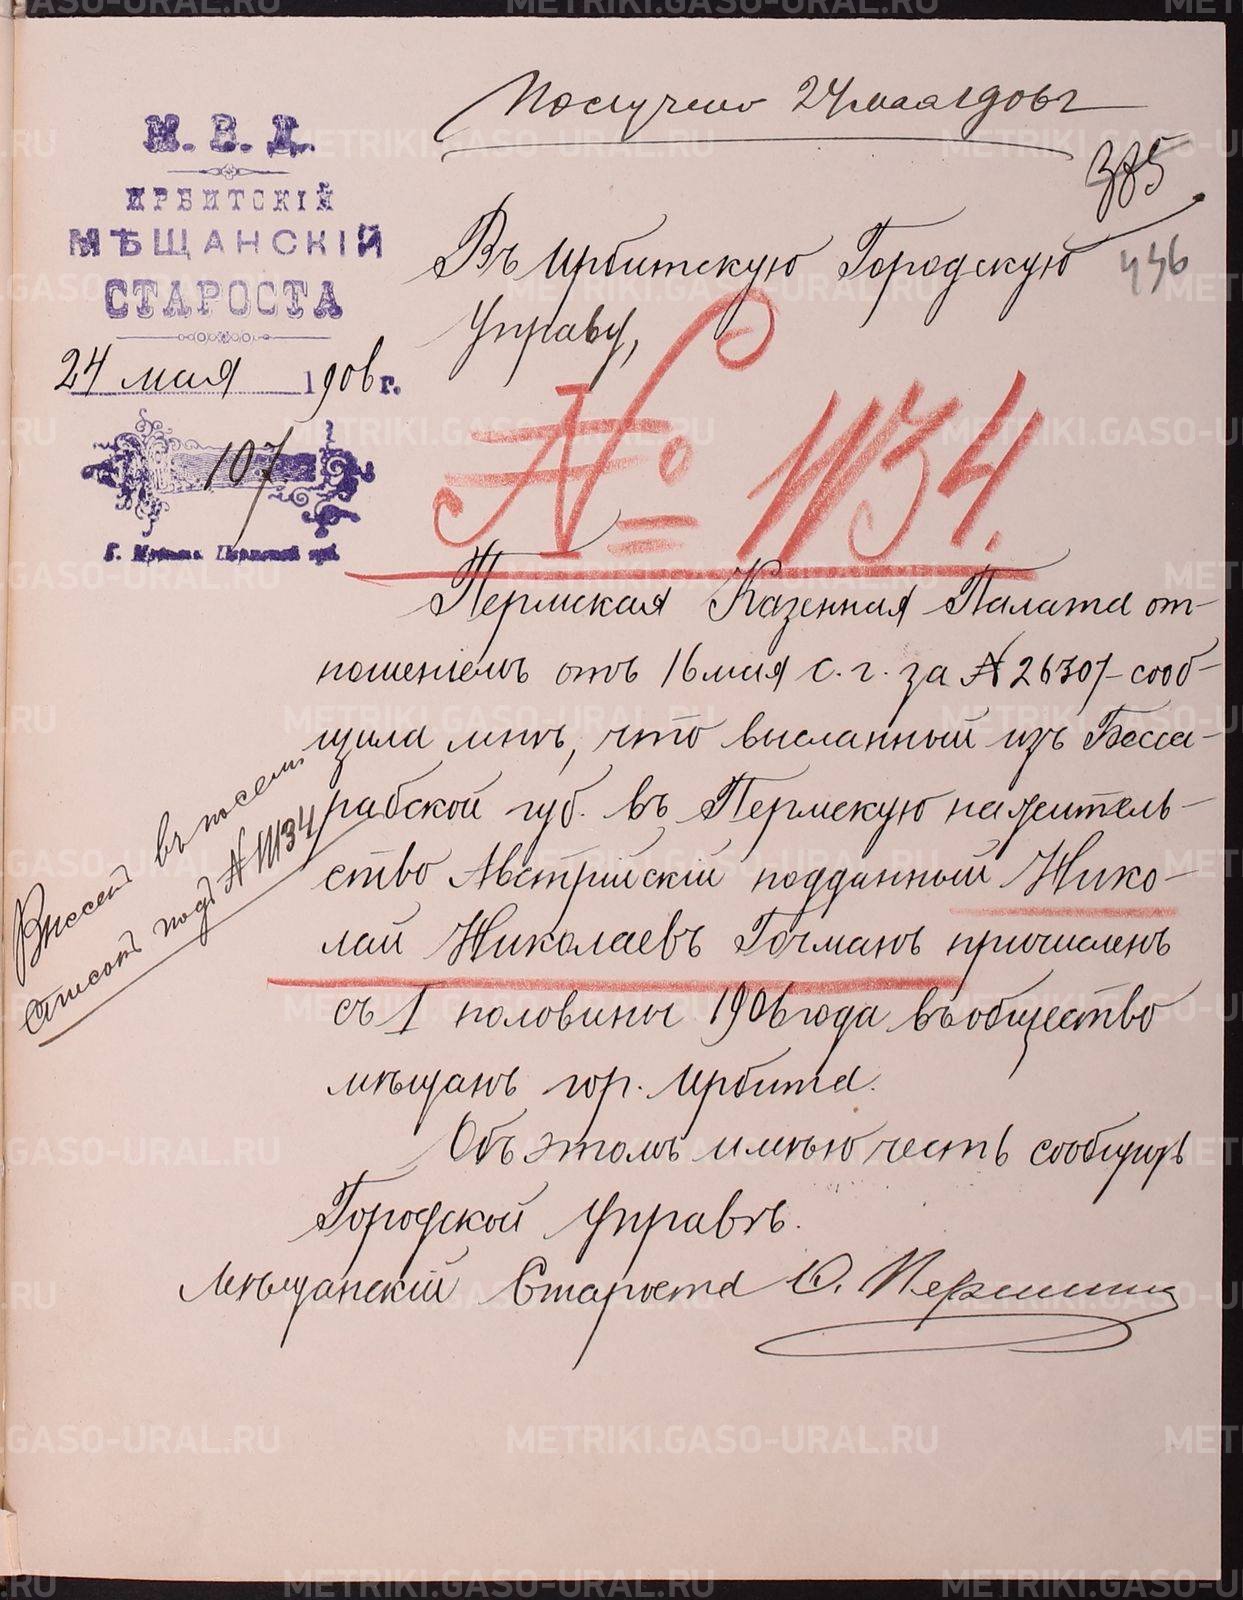 Получено 24 мая 1906 г
385
436
М. В. Д.
ИРБИТСКІЙ
МѢЩАНСКІЙ
СТАРОСТА
24 мая 1906 г.
107.
Въ Ирбитскую Городскую
Управу,
№ 1134.
Пермская Казенная Палата от-
ношеніемъ отъ 16 мая с. г. за № 26307 сооб-
щила мнѣ, что высланный изъ Бесса-
рабской губ. въ Пермскую на житель-
ство Австрійскій подданный Нико-
лай Николаевъ Гочманъ причисленъ
съ 1 половины 1906 года въ общество
мѣщанъ гор. Ирбита.
Объ этомъ имѣю честь сообщить
Городской Управѣ.
Мѣщанскій Староста Ю. Першинъ
Внесенъ въ посем.
списокъ подъ № 1134
METRIKI.GASO-URAL.RU